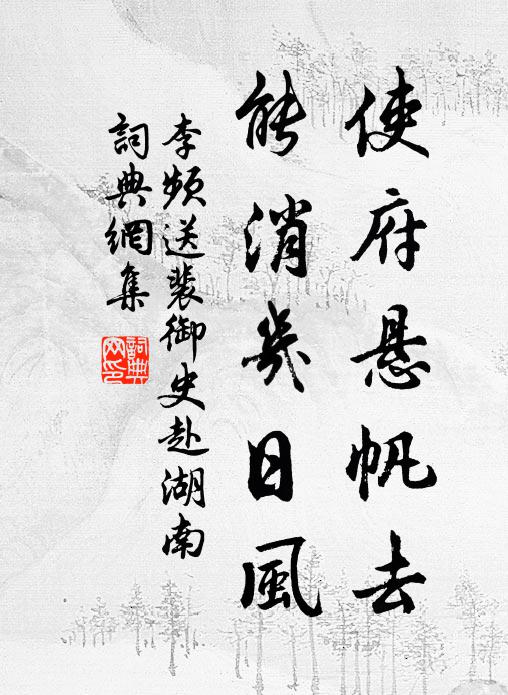 使府悬帆去
能消幾日風
李頻送裴御史赴湖南
詞典網集
詞典網印